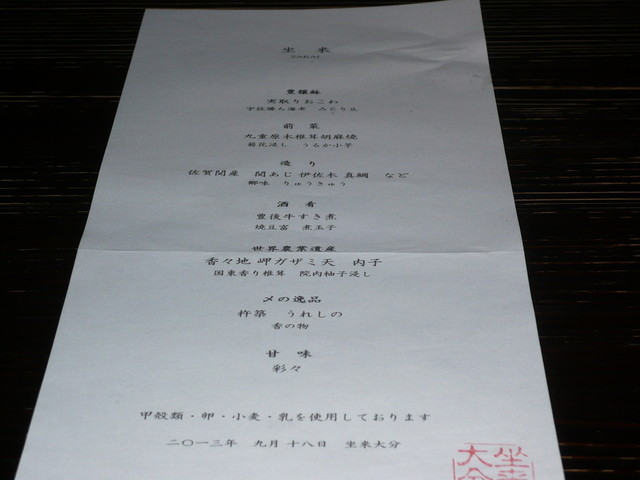 坐来
ZARAI
豊穣鮴
実取りおこわ
宇佐勝ち海老 みどり豆
前菜
九重原木椎茸胡麻焼
菊花浸し うるか小芋
造り
佐賀関産 関あじ 伊佐木 真鯛 など
郷味 りゅうきゅう
酒肴
豊後牛すき煮
焼豆富 煮玉子
世界農業遺産
香々地 岬ガザミ天 内子
国東香り椎茸 院内柚子浸し
〆の逸品
杵築 うれしの
香の物
甘味
彩々
甲殻類・卵・小麦・乳を使用しております
二〇一三年 九月十八日 坐来大分
坐来
大分